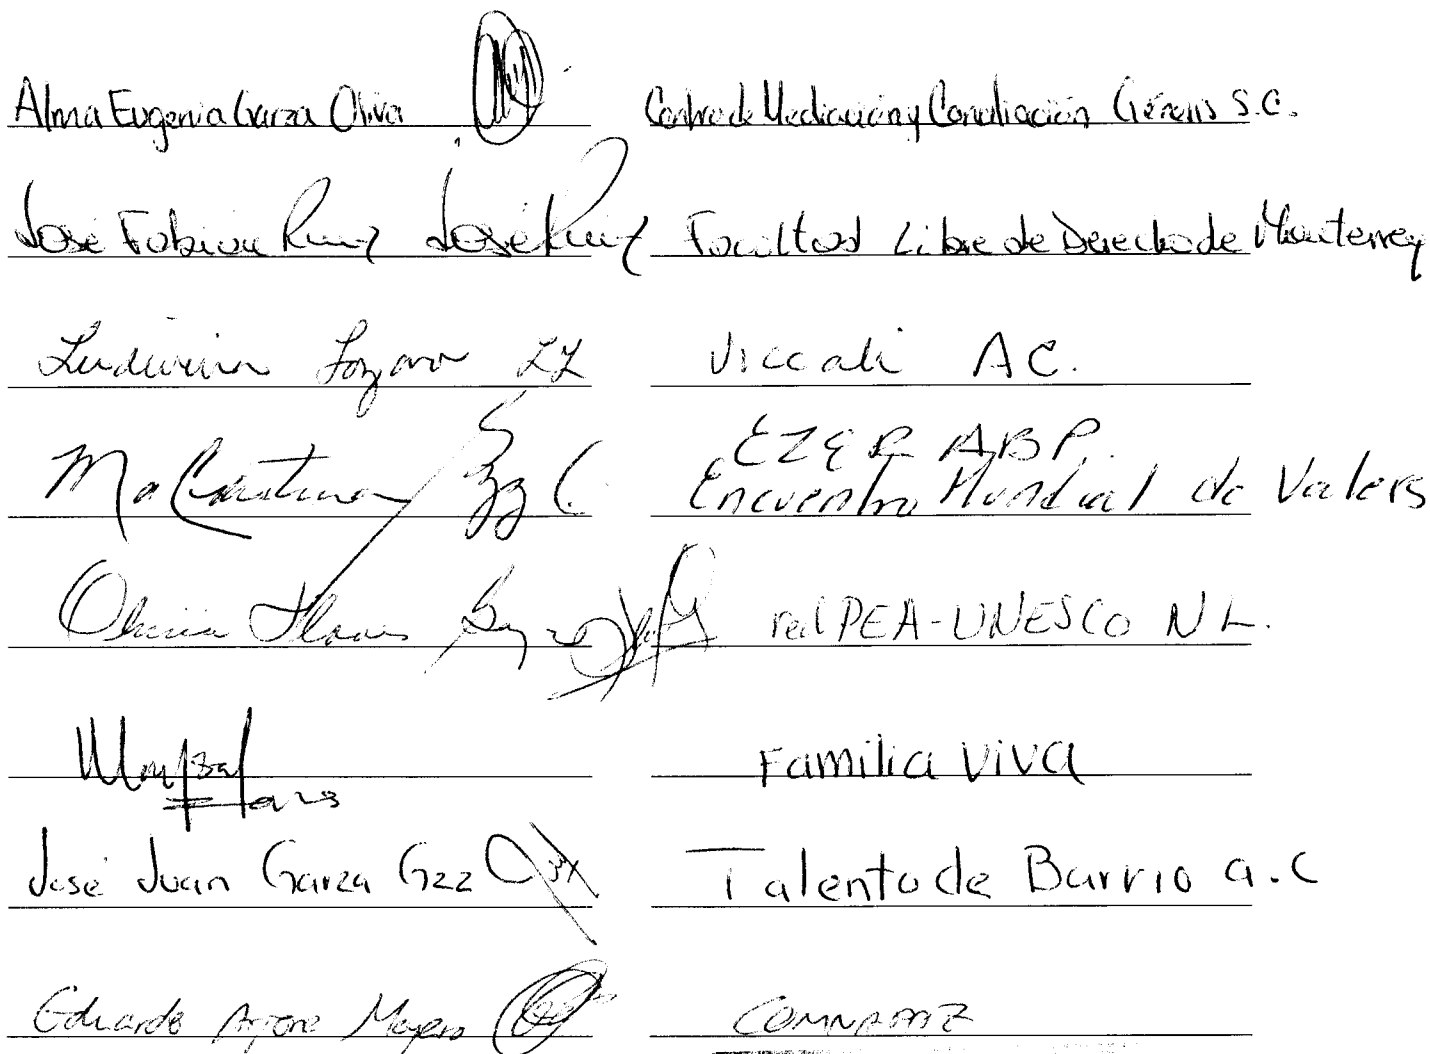 Alma Eugenia Garza Oliva Centro de Mediación y Conciliación Génesis S.C.
José Fabián Ruiz José Ruiz Facultad Libre de Derecho de Monterrey
Ludivina Lozano Viccali AC.
Ma Cristina EZER ABP.
Encuentro Mundial de Valors
Olivia Flores red PEA-UNESCO N L.
Familia Viva
José Juan Garza Gzz Talento de Barrio a.C
Eduardo